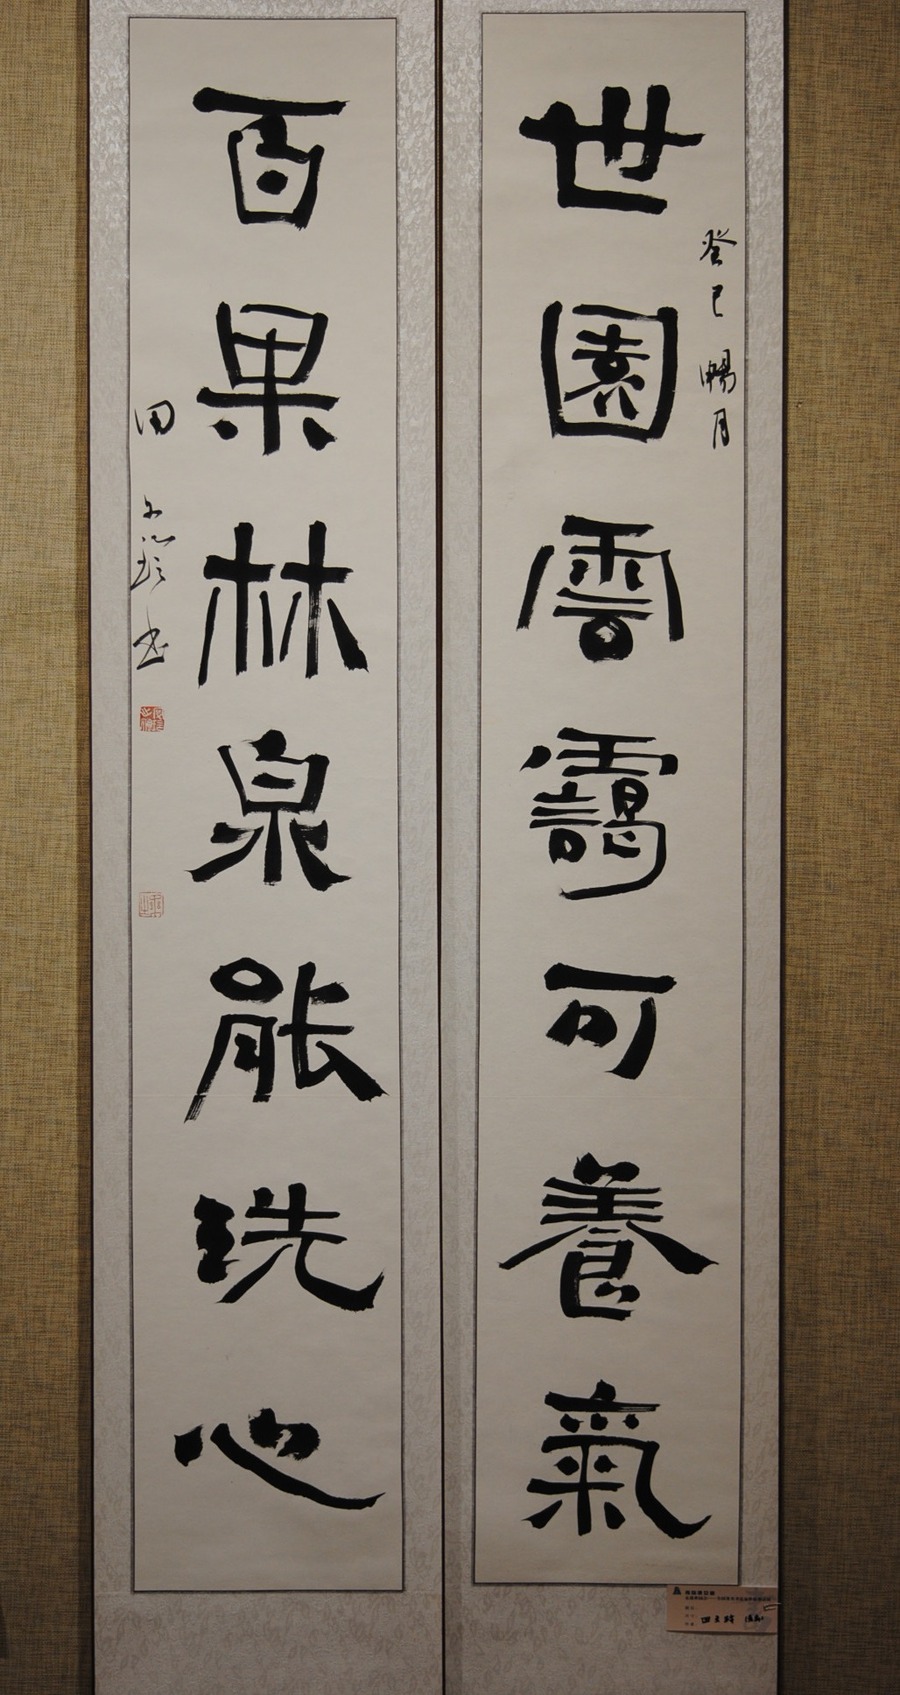 世園雲靄可養氣
癸巳暢月
百果林泉能洗心
田
書